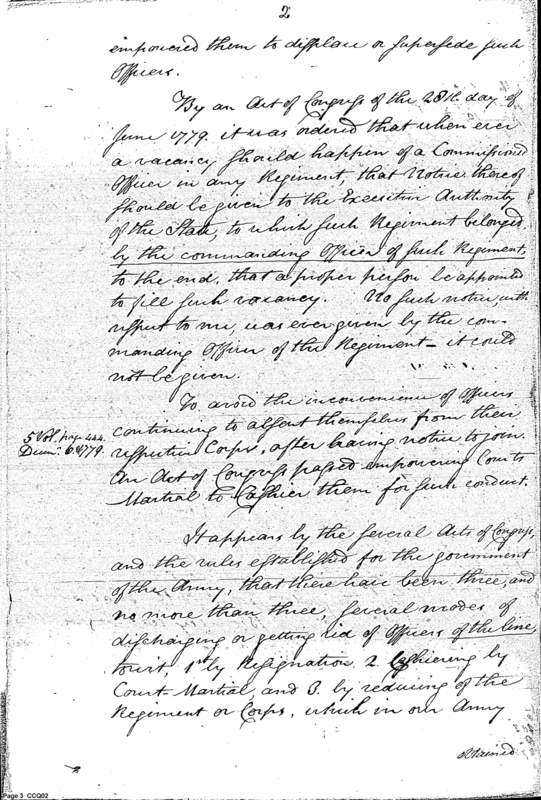 2
empowered them to displace or supersede such
Officers.
By an Act of Congress of the 28th. day of
June 1779. it was ordered that when ever
a vacancy should happen of a Commissioned
Officer in any Regiment, that Notice thereof
should be given to the Executive Authority
of the State, to which such Regiment belonged
by the commanding Officer of such Regiment,
to the end, that a proper person be appointed
to fill such vacancy. No such notice, with
respect to me, was ever given by the com-
manding Officer of the Regiment - it could
not be given.
To avoid the inconvenience of Officers
continuing to absent themselves from their
5 Vol. page 444.
Decemr. 6. 1779.
respective Corps, after having notice to join.
An Act of Congress passed empowering Courts
Martial to Cashier them for such conduct.
It appears by the several Acts of Congress,
and the rules established for the government
of the Army, that there have been three, and
no more than three, several modes of
discharging or getting rid of Officers of the line,
to wit, 1st by Resignation 2. Cashiering by
Court Martial, and 3. by reducing of the
Regiment or Corps, which in our Army
obtained
Page 3 CCQ02